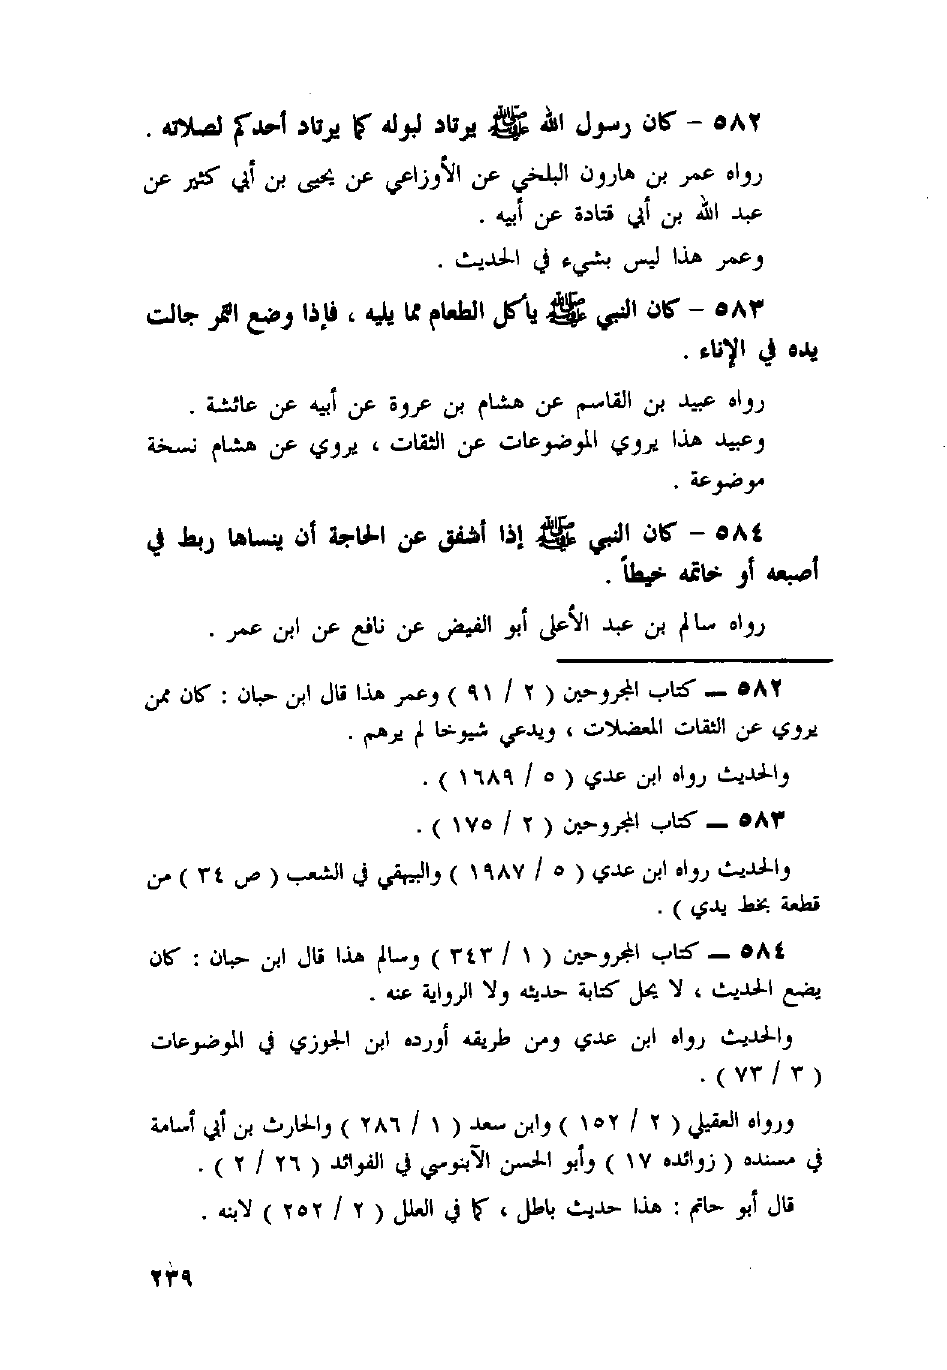 ٥٨٢ – كان رسول الله ﷺ يرتاد لبوله كما يرتاد أحدكم لصلاته .
رواه عمر بن هارون البلخي عن الأوزاعي عن يحيى بن أبي كثير عن
عبد الله بن أبي قتادة عن أبيه .
وعمر هذا ليس بشيء في الحديث .
٥٨٣ – كان النبي ﷺ يأكل الطعام مما يليه ، فإذا وضع التمر جالت
يده في الإناء .
رواه عبيد بن القاسم عن هشام بن عروة عن أبيه عن عائشة .
وعبيد هذا يروي الموضوعات عن الثقات ، يروي عن هشام نسخة
موضوعة .
٥٨٤ – كان النبي ﷺ إذا أشفق عن الحاجة أن ينساها ربط في
أصبعه أو خاتمه خيطاً .
رواه سالم بن عبد الأعلى أبو الفيض عن نافع عن ابن عمر .
٥٨٢ — كتاب المجروحين ( ٢ / ٩١ ) وعمر هذا قال ابن حبان : كان ممن
يروي عن الثقات المعضلات ، ويدعي شيوخا لم يرهم .
والحديث رواه ابن عدي ( ٥ / ١٦٨٩ ) .
٥٨٣ — كتاب المجروحين ( ٢ / ١٧٥ ) .
والحديث رواه ابن عدي ( ٥ / ١٩٨٧ ) والبيهقي في الشعب ( ص ٣٤ ) من
قطعة بخط يدي ) .
٥٨٤ — كتاب المجروحين ( ١ / ٣٤٣ ) وسالم هذا قال ابن حبان : كان
يضع الحديث ، لا يحل كتابة حديثه ولا الرواية عنه .
والحديث رواه ابن عدي ومن طريقه أورده ابن الجوزي في الموضوعات
( ٣ / ٧٣ ) .
ورواه العقيلي ( ٢ / ١٥٢ ) وابن سعد ( ١ / ٢٨٦ ) والحارث بن أبي أسامة
في مسنده ( زوائده ١٧ ) وأبو الحسن الآبنوسي في الفوائد ( ٢٦ / ٢ ) .
قال أبو حاتم : هذا حديث باطل ، كما في العلل ( ٢ / ٢٥٢ ) لابنه .
٢٣٩